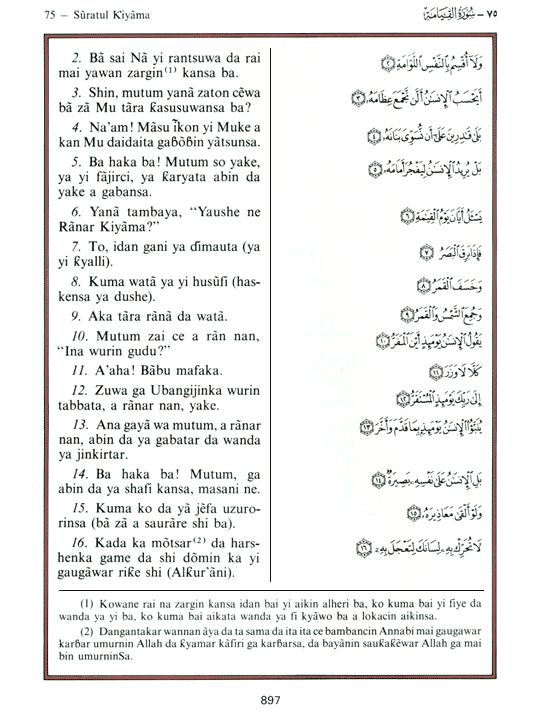 75 — Sũratul Ƙiyãma
٧٥ – سُورَةُ القِيَامَة
2. Bã sai Nã yi rantsuwa da rai
mai yawan zargin(1) kansa ba.
3. Shin, mutum yanã zaton cẽwa
bã zã Mu tãra ƙasusuwansa ba?
4. Na'am! Mãsu ĩkon yi Muke a
kan Mu daidaita gaɓõɓin yãtsunsa.
5. Ba haka ba! Mutum so yake,
ya yi fãjirci, ya ƙaryata abin da
yake a gabansa.
6. Yanã tambaya, "Yaushe ne
Rãnar Kiyãma?"
7. To, idan gani ya ɗimauta (ya
yi ƙyalli).
8. Kuma watã ya yi husũfi (has-
kensa ya dushe).
9. Aka tãra rãnã da watã.
10. Mutum zai ce a rãn nan,
"Ina wurin gudu?"
11. A'aha! Bãbu mafaka.
12. Zuwa ga Ubangijinka wurin
tabbata, a rãnar nan, yake.
13. Ana gayã wa mutum, a rãnar
nan, abin da ya gabatar da wanda
ya jinkirtar.
14. Ba haka ba! Mutum, ga
abin da ya shafi kansa, masani ne.
15. Kuma ko da yã jẽfa uzuro-
rinsa (bã zã a saurãre shi ba).
16. Kada ka mõtsar(2) da hars-
henka game da shi dõmin ka yi
gaugãwar riƙe shi (Alƙur'ãni).
وَلَآ أُقْسِمُ بِٱلنَّفْسِ ٱللَّوَّامَةِ ﴿٢﴾
أَيَحْسَبُ ٱلْإِنسَٰنُ أَلَّن نَّجْمَعَ عِظَامَهُۥ ﴿٣﴾
بَلَىٰ قَٰدِرِينَ عَلَىٰٓ أَن نُّسَوِّىَ بَنَانَهُۥ ﴿٤﴾
بَلْ يُرِيدُ ٱلْإِنسَٰنُ لِيَفْجُرَ أَمَامَهُۥ ﴿٥﴾
يَسْـَٔلُ أَيَّانَ يَوْمُ ٱلْقِيَٰمَةِ ﴿٦﴾
فَإِذَا بَرِقَ ٱلْبَصَرُ ﴿٧﴾
وَخَسَفَ ٱلْقَمَرُ ﴿٨﴾
وَجُمِعَ ٱلشَّمْسُ وَٱلْقَمَرُ ﴿٩﴾
يَقُولُ ٱلْإِنسَٰنُ يَوْمَئِذٍ أَيْنَ ٱلْمَفَرُّ ﴿١٠﴾
كَلَّا لَا وَزَرَ ﴿١١﴾
إِلَىٰ رَبِّكَ يَوْمَئِذٍ ٱلْمُسْتَقَرُّ ﴿١٢﴾
يُنَبَّؤُا۟ ٱلْإِنسَٰنُ يَوْمَئِذٍۭ بِمَا قَدَّمَ وَأَخَّرَ ﴿١٣﴾
بَلِ ٱلْإِنسَٰنُ عَلَىٰ نَفْسِهِۦ بَصِيرَةٌ ﴿١٤﴾
وَلَوْ أَلْقَىٰ مَعَاذِيرَهُۥ ﴿١٥﴾
لَا تُحَرِّكْ بِهِۦ لِسَانَكَ لِتَعْجَلَ بِهِۦٓ ﴿١٦﴾
(1) Kowane rai na zargin kansa idan bai yi aikin alheri ba, ko kuma bai yi fiye da
wanda ya yi ba, ko kuma bai aikata wanda ya fi kyãwo ba a lokacin aikinsa.
(2) Dangantakar wannan ãya da ta sama da ita ita ce bambancin Annabi mai gaugawar
karɓar umurnin Allah da ƙyamar kãfiri ga karɓarsa, da bayãnin sauƙaƙẽwar Allah ga mai
bin umurninSa.
897